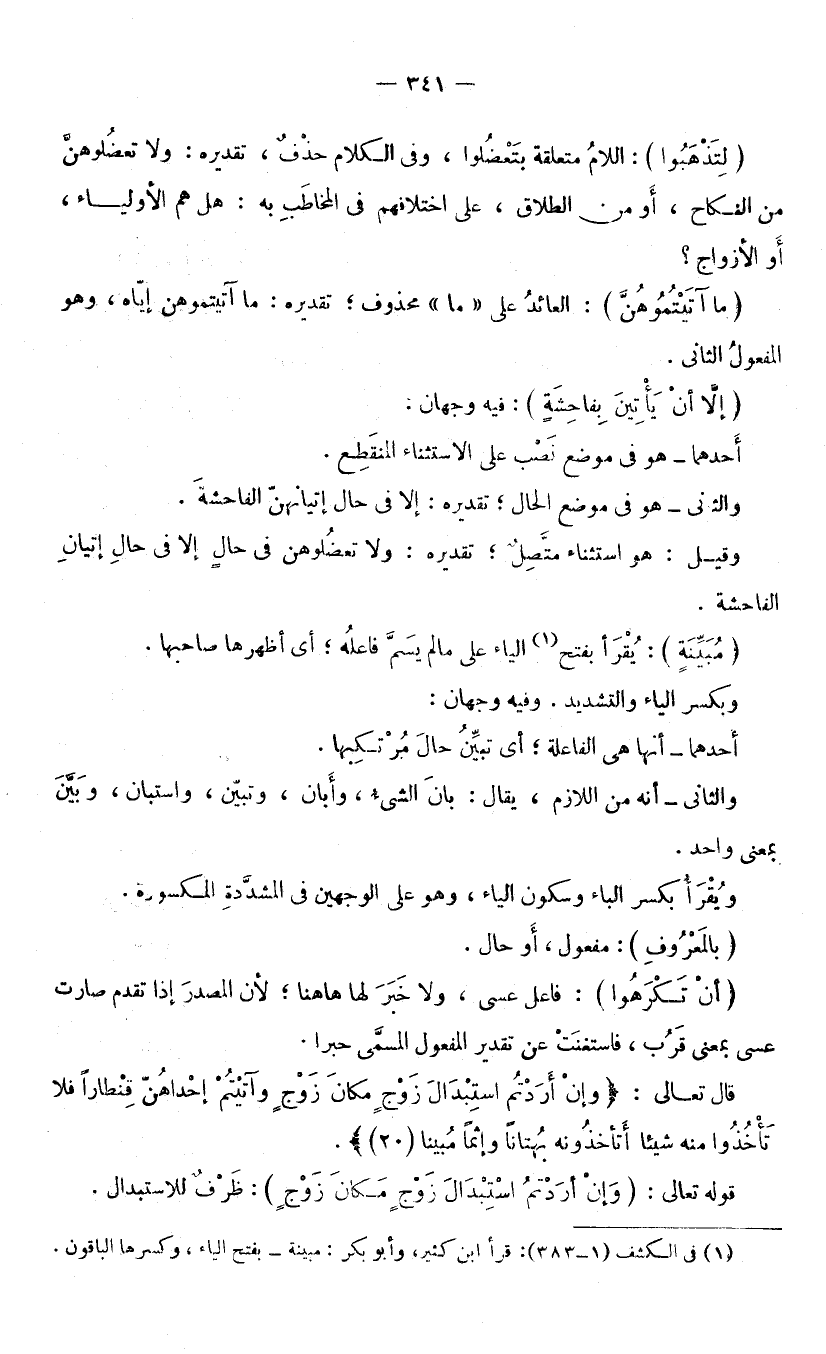 — ٣٤١ —
( لِتَذْهَبُوا ) : اللامُ متعلقة بتَعْضُلوا ، وفى الكلام حذْفٌ ، تقديره : ولا تعضُلوهنَّ
من النكاح ، أَو من الطلاق ، على اختلافهم فى المخاطَبِ به : هل هم الأولياء ،
أَو الأزواج ؟
( ما آتَيْتُمُوهُنَّ ) : العائدُ على « ما » محذوف ؛ تقديره : ما آتيتموهن إيّاه ، وهو
المفعولُ الثانى .
( إلَّا أنْ يَأْتِينَ بِفاحِشَةٍ ) : فيه وجهان :
أَحدهما ـ هو فى موضع نَصْب على الاستثناء المنقَطِع .
والثانى ـ هو فى موضع الحال ؛ تقديره : إلا فى حال إتيانهنّ الفاحشةَ .
وقيل : هو استثناء متَّصِلٌ ؛ تقديره : ولا تعضُلوهن فى حالٍ إلا فى حالِ إتيانِ
الفاحشة .
( مُبَيِّنَةٍ ) : يُقْرَأ بفتح(١) الياء على مالم يسَمَّ فاعلُه ؛ أى أظهرها صاحبها .
وبكسر الياء والتشديد . وفيه وجهان :
أحدهما ـ أنها هى الفاعلة ؛ أى تبيِّنُ حالَ مُرْتكبِها .
والثانى ـ أنه من اللازم ، يقال : بانَ الشىء ، وأَبان ، وتبيّن ، واستبان ، وبَيَّنَ
بمعنى واحد .
ويُقْرَأُ بكسر الباء وسكون الياء ، وهو على الوجهين فى المشدَّدةِ المكسورة .
( بالمَعْرُوفِ ) : مفعول ، أَو حال .
( أنْ تَكْرَهُوا ) : فاعل عسى ، ولا خَبَرَ لها هاهنا ؛ لأن المصدرَ إذا تقدم صارت
عسى بمعنى قَرُب ، فاستغنَتْ عن تقدير المفعول المسمَّى خبرا .
قال تعالى : ﴿ وإنْ أَرَدْتُم استِبْدَالَ زَوْجٍ مكانَ زَوْجٍ وآتَيْتُمْ إحْداهُنّ قِنْطاراً فلا
تَأْخُذُوا منه شيئا أَتأخذُونه بُهتاناً وإثماً مُبينا (٢٠) ﴾ .
قوله تعالى : ( وَإِنْ أرَدْتُمُ اسْتِبْدَالَ زَوْجٍ مَكانَ زَوْجٍ ) : ظَرْفٌ للاستبدال .
(١) فى الكشف (١ـ٣٨٣): قرأ ابن كثير، وأبو بكر : مبينة ـ بفتح الياء ، وكسرها الباقون .